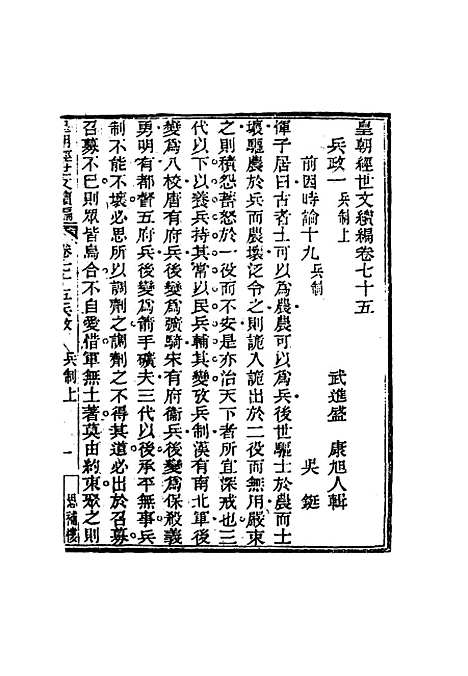 皇朝經世文續編卷七十五
武進盛　康旭人輯
兵政一　兵制上
前因時論十九　兵制　吳　鋌
僤子居曰古者士可以為農農可以為兵後世驅士於農而士
壞驅農於兵而農壞泛令之則詭入詭出於二役而無用嚴束
之則積怨蓄怒於一役而不安是亦治天下者所宜深戒也三
代以下以養兵持其常以民兵輔其變攷兵制漢有南北軍後
變為八校唐有府兵後變為彍騎宋有府衞兵後變為保毅義
勇明有都督五府兵後變為箭手礦夫三代以後承平無事兵
制不能不壞必思所以調劑之調劑之不得其道必出於召募
召募不已則眾皆烏合不自愛惜軍無土著莫由約束聚之則
皇朝經世文續編　卷七十五兵政　兵制上　一　思補樓